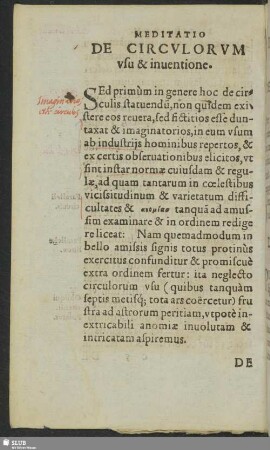 MEDITATIO
DE CIRCVLORVM
vsu & inuentione.
SEd primùm in genere hoc de cir-
culis statuendũ, non quidem exi-
stere eos reuera, sed fictitios esse dun-
taxat & imaginatorios, in eum vsum
ab industrijs hominibus repertos, &
ex certis obseruationibus elicitos, vt
sint instar normæ cuiusdam & regu-
læ, ad quam tantarum in cœlestibus
vicissitudinum & varietatum diffi-
cultates & tanquã ad amus-
sim examinare & in ordinem redige-
re liceat: Nam quemadmodum in
bello amissis signis totus protinùs
exercitus confunditur & promiscuè
extra ordinem fertur: ita neglecto
circulorum vsu (quibus tanquàm
septis metisq; tota ars coërcetur) fru
stra ad astrorum peritiam, vtpotè in-
extricabili anomiæ inuolutam &
intricatam aspiremus.
DE
SLUB